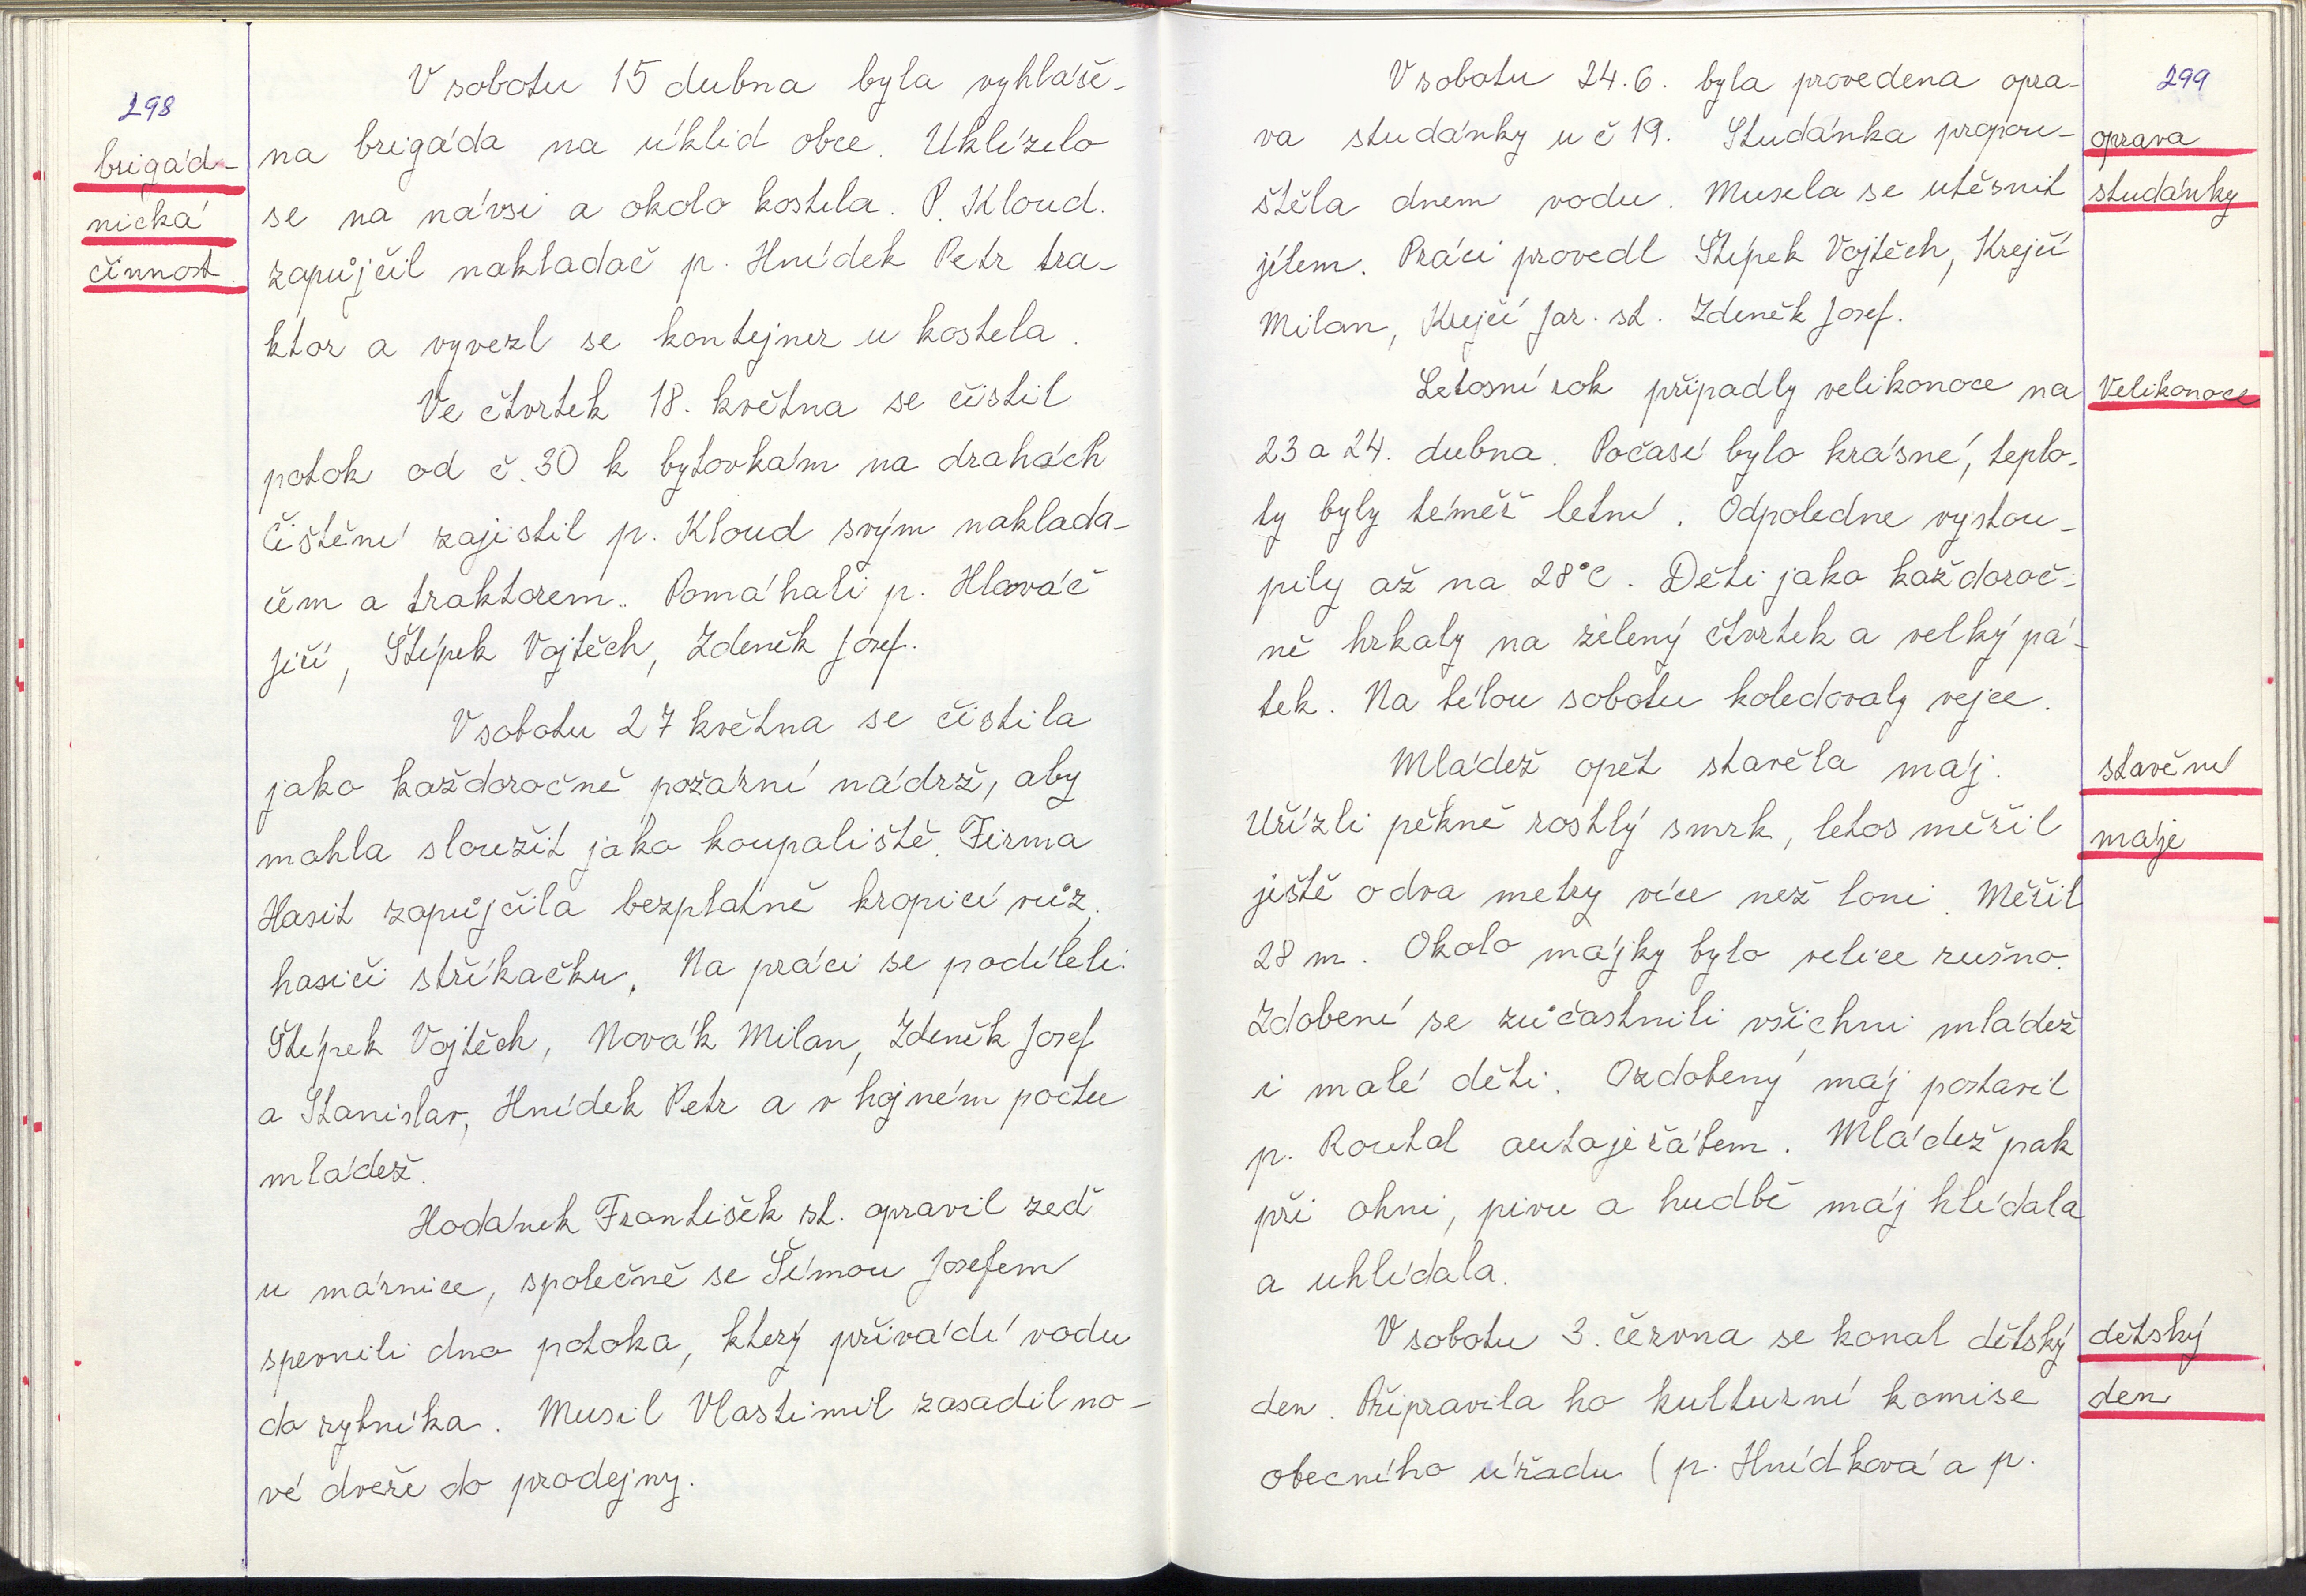 298
brigád-
nická
činnost.
V sobotu 15 dubna byla vyhláše-
na brigáda na úklid obce. Uklízelo
se na návsi a okolo kostela. P. Kloud.
zapůjčil nakladač p. Hnídek Petr tra-
ktor a vyvezl se kontejner u kostela.
Ve čtvrtek 18. května se čistil
potok od č. 30 k bytovkám na drahách
Čištění zajistil p. Kloud svým naklada-
čem a traktorem. Pomáhali p. Hlaváč
Jiří, Štípek Vojtěch, Zdeněk Josef.
V sobotu 27 května se čistila
jako každoročně požární nádrž, aby
mohla sloužit jako koupaliště. Firma
Hasit zapůjčila bezplatně kropicí vůz,
hasiči stříkačku. Na práci se podíleli:
Štípek Vojtěch, Novák Milan, Zdeněk Josef
a Stanislav, Hnídek Petr a v hojném počtu
mládež.
Hodánek František st. opravil zeď
u márnice, společně se Šímou Josefem
spevnili dno potoka, který přivádí vodu
do rybníka. Musil Vlastimil zasadil no-
vé dveře do prodejny.
299
V sobotu 24.6. byla provedena opra-
va studánky u č 19. Studánka propou-
štěla dnem vodu. Musela se utěsnit
jílem. Práci provedl Štípek Vojtěch, Krejčí
Milan, Krejčí Jar. st. Zdeněk Josef.
Letosní rok připadly velikonoce na
23 a 24. dubna. Počasí bylo krásné, teplo-
ty byly téměř letní. Odpoledne vystou-
pily až na 28°C. Děti jako každoroč-
ně hrkaly na zelený čtvrtek a velký pá-
tek. Na bílou sobotu koledovaly vejce.
Mládež opět stavěla máj.
Uřízli pěkně rostlý smrk, letos měřil
ještě o dva metry více než loni. Měřil
28 m. Okolo májky bylo velice rušno.
Zdobení se zúčastnili všichni mládež
i malé děti. Ozdobený máj postavil
p. Routal autojeřábem. Mládež pak
při ohni, pivu a hudbě máj hlídala
a uhlídala.
V sobotu 3. června se konal dětský
den. Připravila ho kulturní komise
obecního úřadu (p. Hnídková a p.
oprava
studánky
Velikonoce
stavění
máje
dětský
den